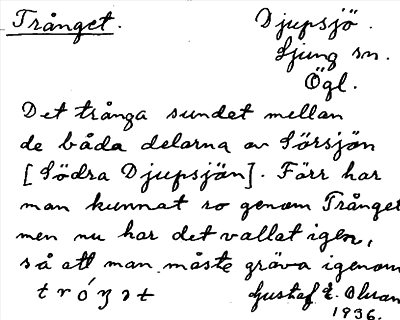 Trånget. Djupsjö.
Ljung sn.
Ögl.
Det trånga sundet mellan
de båda delarna av Sörsjön
[Södra Djupsjön]. Förr har
man kunnat ro genom Trånget
men nu har det vallat igen,
så att man måste gräva igenom
Gustaf E. Olsson
1936.